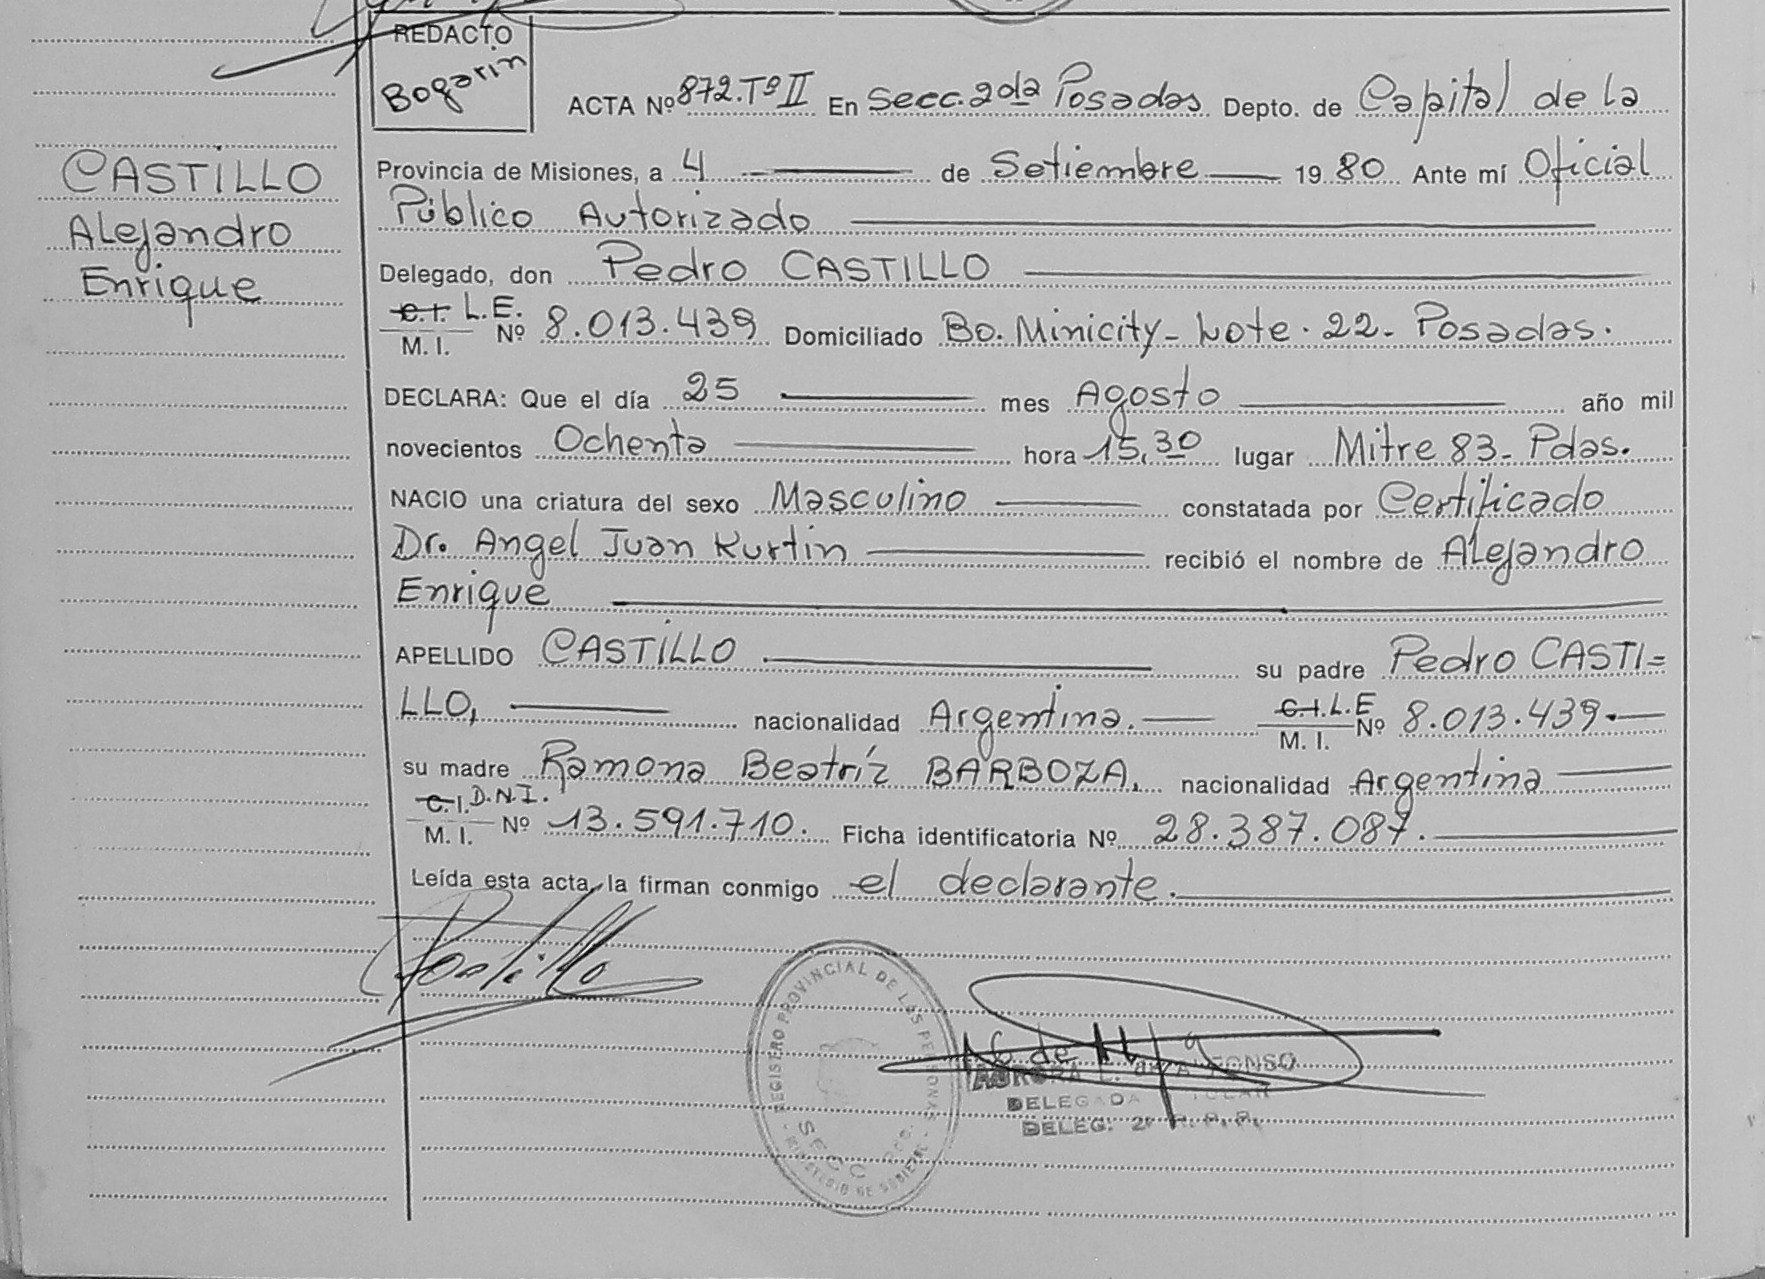 REDACTO
Bogarin
ACTA Nº 872.Tº II En Secc. 2da Posadas Depto. de Capital de la
CASTILLO
Alejandro
Enrique
Provincia de Misiones, a 4 de Setiembre 19 80 Ante mí Oficial
Público Autorizado
Delegado, don Pedro CASTILLO
C.I. L.E.
M. I. Nº 8.013.439 Domiciliado Bo. Minicity - Lote. 22 - Posadas.
DECLARA: Que el día 25 mes Agosto año mil
novecientos Ochenta hora 15,30 lugar Mitre 83 - Pdas.
NACIO una criatura del sexo Masculino constatada por Certificado
Dr. Angel Juan Kurtin recibió el nombre de Alejandro
Enrique
APELLIDO CASTILLO su padre Pedro CASTI=
LLO, nacionalidad Argentina. C.I. L.E M. I. Nº 8.013.439.
su madre Ramona Beatríz BARBOZA, nacionalidad Argentina
C.I. D.N.I.
M. I. Nº 13.591.710. Ficha identificatoria Nº 28.387.087.
Leída esta acta, la firman conmigo el declarante.
Castillo
REGISTRO PROVINCIAL DE LAS PERSONAS
SECC.
MINISTERIO DE GOBIERNO
DELEGADA
DELEG. 2ª R. P. P.